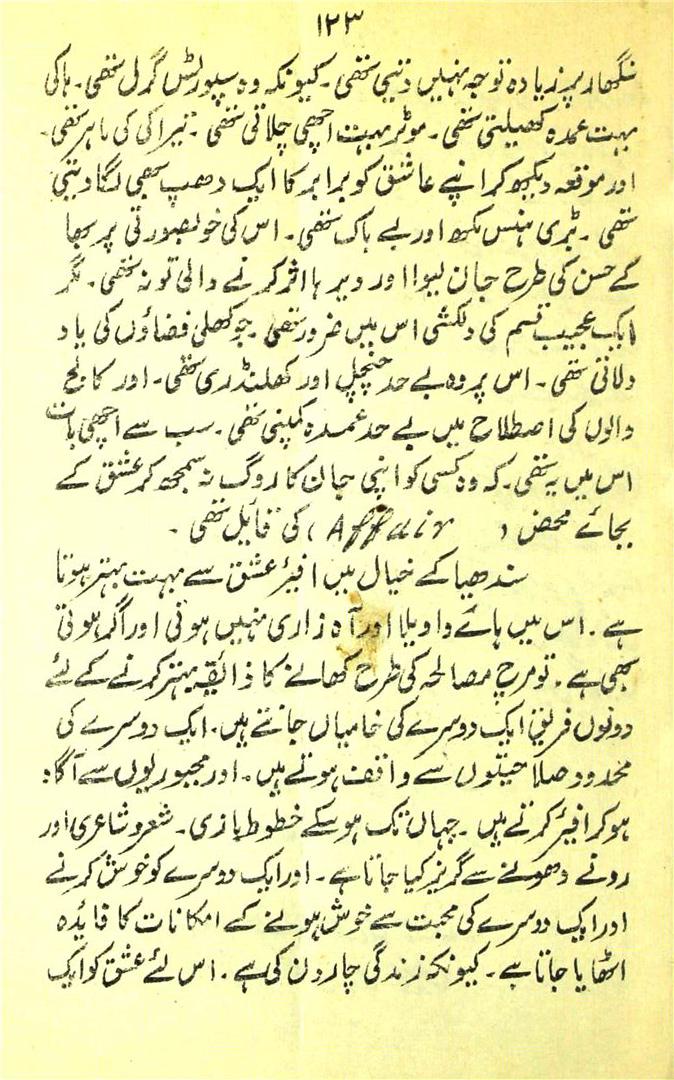 ۱۲۳
نگھار پر زیادہ توجہ نہیں دیتی تھی۔ کیونکہ وہ سپورٹس گرل تھی۔ ہاکی
بہت عمدہ کھیلتی تھی۔ موٹر بہت اچھی چلاتی تھی۔ تیراکی کی ماہر تھی۔
اور موقعہ دیکھ کر اپنے عاشق کو برابر کا ایک دھپ بھی لگا دیتی
تھی۔ بڑی ہنس مکھ اور بے باک تھی۔ اس کی خوبصورتی پربھا
کے حسن کی طرح جان لیوا اور دیرپا اثر کرنے والی تو نہ تھی۔ مگر
ایک عجیب قسم کی دلکشی اس میں ضرور تھی۔ جو کھلی فضاؤں کی یاد
دلاتی تھی۔ اس پر وہ بے حد چنچل اور کھلنڈری تھی۔ اور کالج
والوں کی اصطلاح میں بے حد عمدہ کمپنی تھی۔ سب سے اچھی بات
اس میں یہ تھی۔ کہ وہ کسی کو اپنی جان کا روگ نہ سمجھ کر عشق کے
بجائے محض (Affair) کی قایل تھی۔
سندھیا کے خیال میں افیئر عشق سے بہت بہتر ہوتا
ہے۔ اس میں ہائے واویلا اور آہ زاری نہیں ہوتی اور اگر ہوتی
بھی ہے۔ تو مرچ مصالحہ کی طرح کھانے کا ذائقہ بہتر کرنے کے لئے
دونوں فریق ایک دوسرے کی خامیاں جانتے ہیں۔ ایک دوسرے کی
محدود صلاحیتوں سے واقف ہوتے ہیں۔ اور مجبوریوں سے آگاہ
ہو کر افیئر کرتے ہیں۔ جہاں تک ہو سکے خطوط بازی۔ شعر و شاعری اور
رونے دھونے سے گریز کیا جاتا ہے۔ اور ایک دوسرے کو خوش کرنے
اور ایک دوسرے کی محبت سے خوش ہونے کے امکانات کا فایدہ
اٹھایا جاتا ہے۔ کیونکہ زندگی چار دن کی ہے۔ اس لئے عشق کو ایک